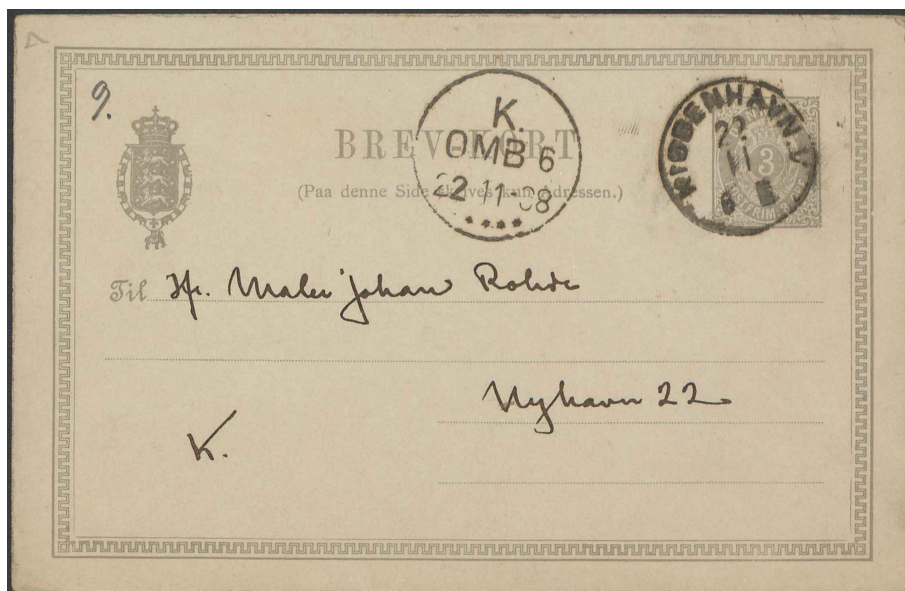 9.
BREVKORT
(Paa denne Side skrives kun Adressen.)
K.
OMB 6
22 11 - 98
KJØBENHAVN. V.
22
11
6 E
3
Til Hr. Maler Johan Rohde
Nyhavn 22
K.